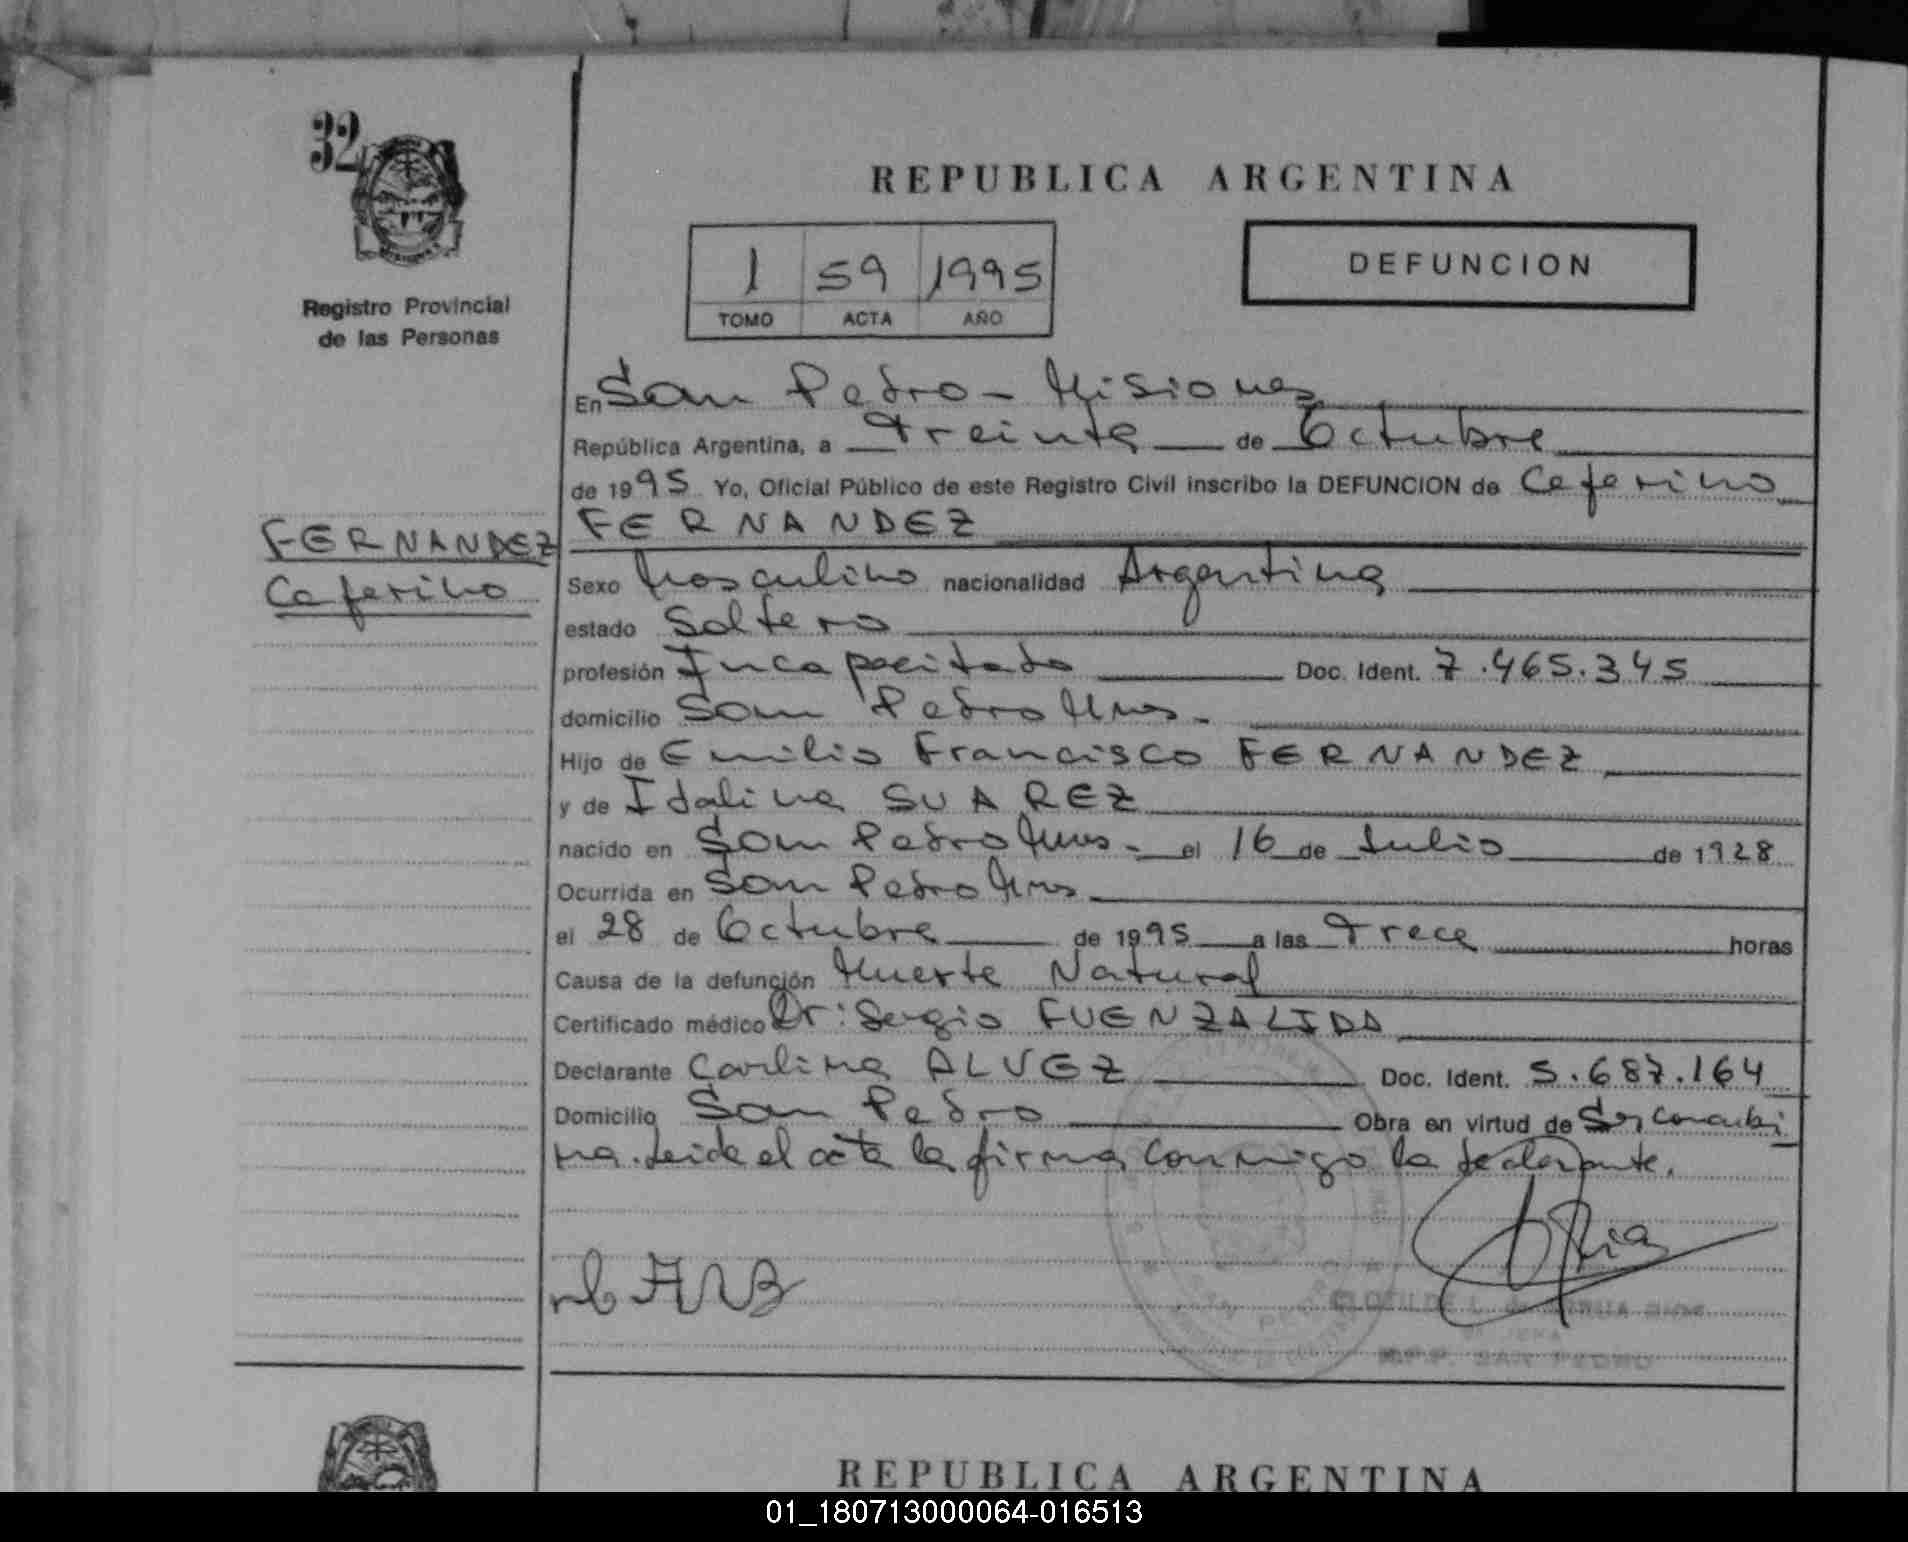 32
Registro Provincial
de las Personas
FERNANDEZ
Ceferino
REPUBLICA ARGENTINA
1 59 1995
TOMO ACTA AÑO
DEFUNCION
En San Pedro - Misiones
República Argentina, a Treinta de Octubre
de 1995 Yo, Oficial Público de este Registro Civil inscribo la DEFUNCION de Ceferino
FERNANDEZ
Sexo Masculino nacionalidad Argentina
estado Soltero
profesión Incapacitado Doc. Ident. 7.465.345
domicilio San Pedro Mnes.
Hijo de Emilio Francisco FERNANDEZ
y de Idalina SUAREZ
nacido en San Pedro Mnes. el 16 de Julio de 1928
Ocurrida en San Pedro Mnes
el 28 de Octubre de 1995 a las Trece horas
Causa de la defunción Muerte Natural
Certificado médico Dr: Sergio FUENZALIDA
Declarante Carlina ALVEZ Doc. Ident. 5.687.164
Domicilio San Pedro Obra en virtud de Ser concubi
na. Leida el acta la firma conmigo la declarante.
R.P.P. SAN PEDRO
REPUBLICA ARGENTINA
01_180713000064-016513